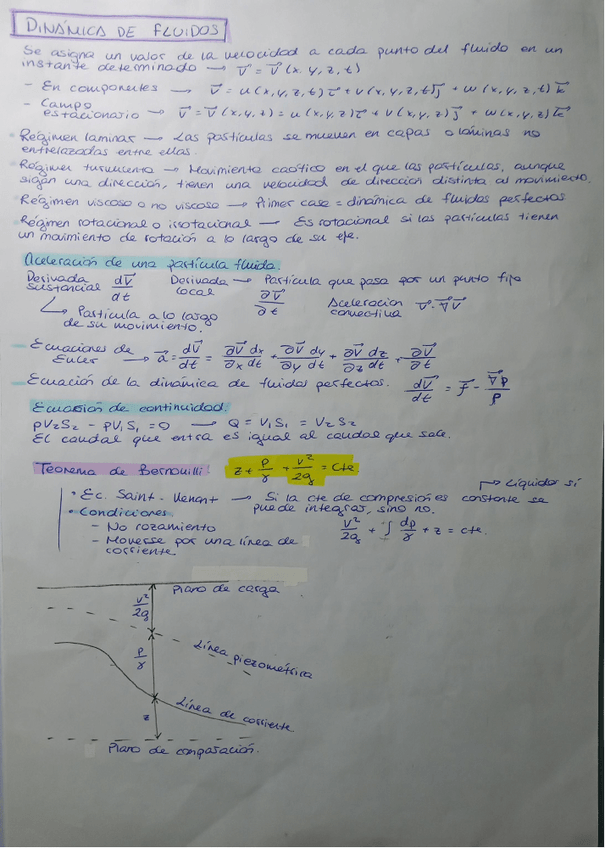 DINÁMICA DE FLUIDOS
Se asigna un valor de la velocidad a cada punto del fluido en un
instante determinado → V⃗ = V⃗ (x, y, z, t)
- En componentes → V⃗ = u(x,y,z,t)i⃗ + v(x,y,z,t)j⃗ + w(x,y,z,t)k⃗
- Campo
estacionario → V⃗ = V⃗(x,y,t) = u(x,y,z)i⃗ + v(x,y,z)j⃗ + w(x,y,z)k⃗
• Régimen laminar → Las partículas se mueven en capas o láminas no
entrelazadas entre ellas.
• Régimen turbulento → Movimiento caótico en el que las partículas, aunque
sigan una dirección, tienen una velocidad de dirección distinta al movimiento.
• Régimen viscoso o no viscoso → Primer caso = dinámica de fluidos perfectos
• Régimen rotacional o irrotacional → Es rotacional si las partículas tienen
un movimiento de rotación a lo largo de su eje.
Aceleración de una partícula fluida.
Derivada sustancial dV⃗/dt Derivada local → Partícula que pasa por un punto fijo
∂V⃗/∂t Aceleración convectiva V⃗·∇⃗V⃗
↳ Partícula a lo largo
de su movimiento.
- Ecuaciones de Euler → a⃗ = dV⃗/dt = ∂V⃗/∂x dx/dt + ∂V⃗/∂y dy/dt + ∂V⃗/∂z dz/dt + ∂V⃗/∂t
- Ecuación de la dinámica de fluidos perfectos. dV⃗/dt = f⃗ - ∇⃗p/ρ
Ecuación de continuidad.
ρV₂S₂ - ρV₁S₁ = 0 → Q = V₁S₁ = V₂S₂
El caudal que entra es igual al caudal que sale.
Teorema de Bernouilli: z + p/γ + v²/2g = cte
→ Líquidos sí
• Ec. Saint-Venant → Si la cte de compresión es constante se
puede integrar, sino no.
• Condiciones
v²/2g + ∫dp/γ + z = cte.
- No rozamiento
- Moverse por una línea de
corriente
Plano de carga
v²/2g
Línea piezométrica
p/γ
Línea de corriente
z
Plano de comparación.